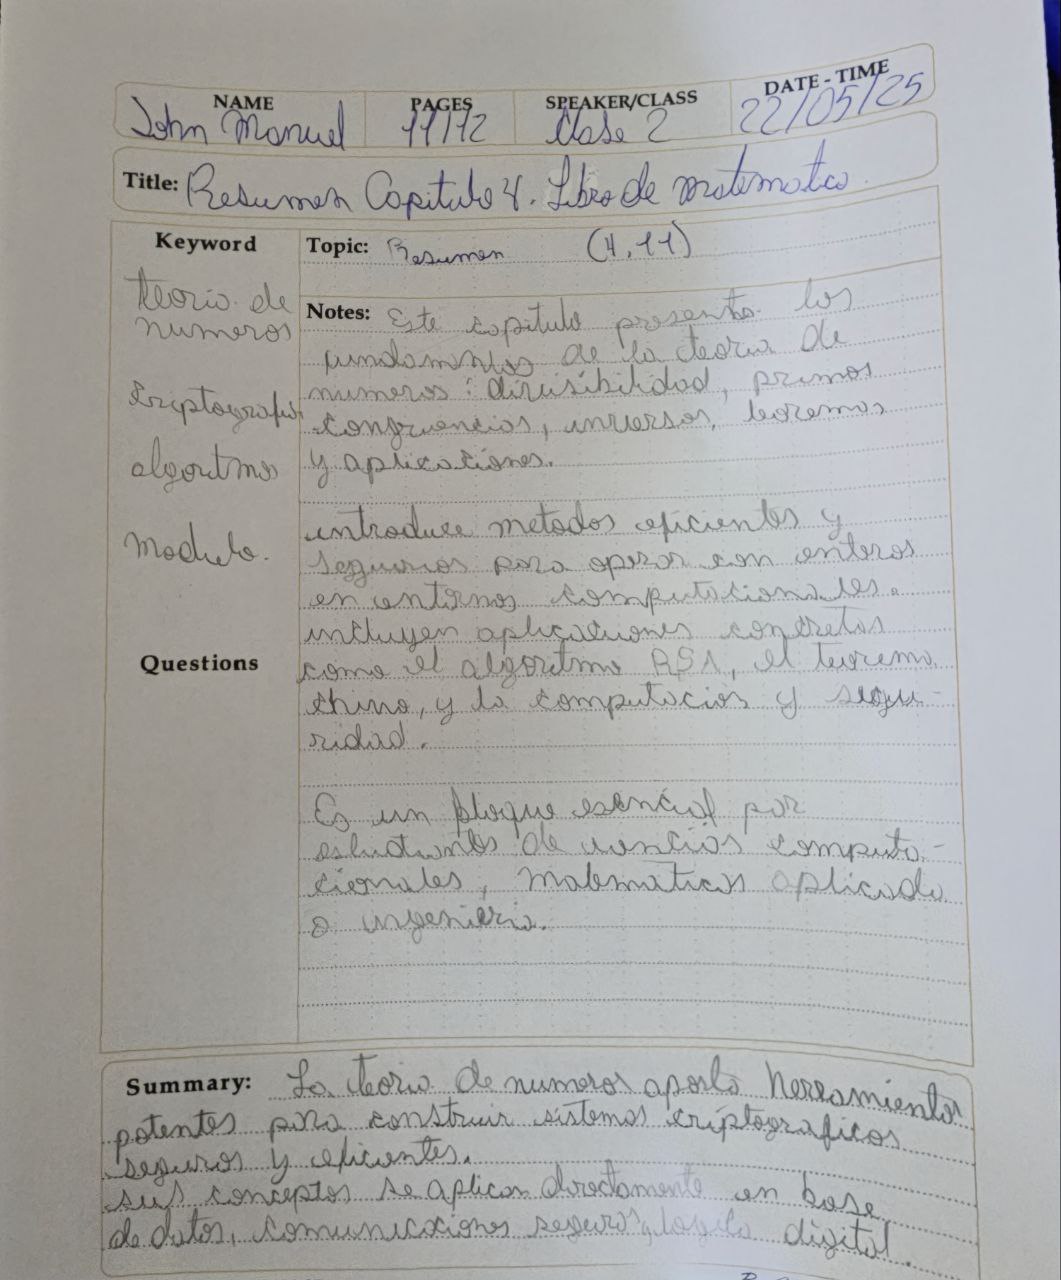 NAME PAGES SPEAKER/CLASS DATE - TIME
John Manuel 11/12 Clase 2 22/05/25
Title: Resumen Capitulo 4. Libro de matematica
Keyword
Topic: Resumen (4,11)
teoria de
numeros
Criptografia
algoritmo
Modulo.
Questions
Notes: Este capitulo presenta los
fundamentos de la teoria de
numeros: divisibilidad, primos
congruencias, inversos, teoremas
y aplicaciones.
introduce metodos eficientes y
seguros para operar con enteros
en entornos computacionales.
incluyen aplicaciones concretas
como el algoritmo RSA, el teorema
chino, y la computacion y segu-
ridad.
Es un bloque esencial por
estudiantes de ciencias computa-
cionales, matematicas aplicada
o ingenieria.
Summary: La teoria de numeros aporta herramientas
potentes para construir sistemas criptograficos
seguros y eficientes.
sus conceptos se aplican directamente en base
de datos, comunicaciones seguras y logica digital.